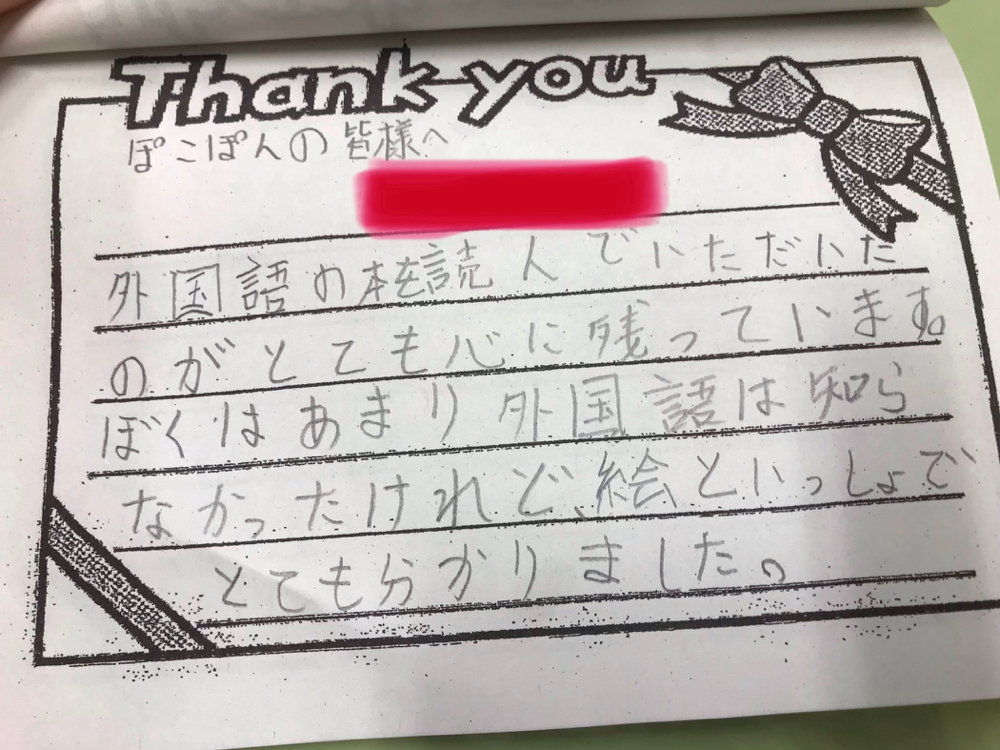 Thank you
ぽこぽんの皆様へ
外国語の本を読んでいただいた
のがとても心に残っています。
ぼくはあまり外国語は知ら
なかったけれど、絵といっしょで
とても分かりました。